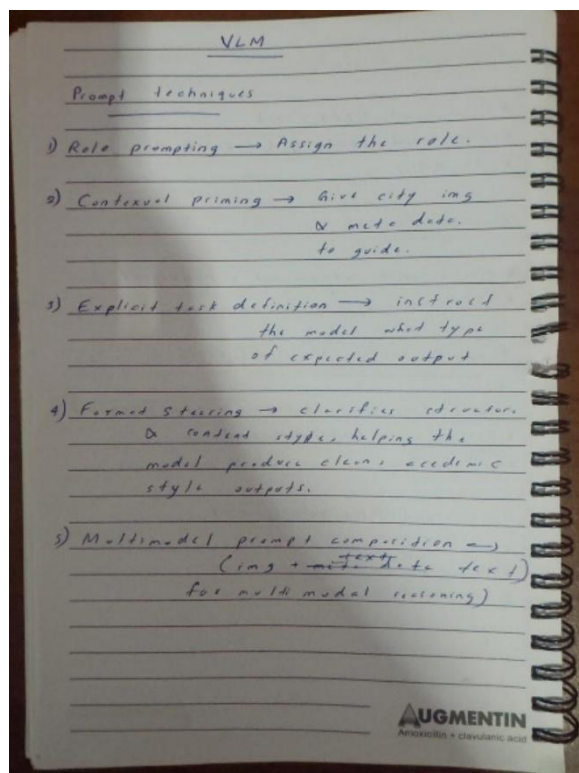 VLM
Prompt techniques
1) Role prompting → Assign the role.
2) Contexual priming → Give city img
& meta data.
to guide.
3) Explicit task definition → instruct
the model what type
of expected output
4) Format Steering → clarifies structure
& content style, helping the
model produce clean, academic
style outputs.
5) Multimodel prompt composition →
text
(img + meta data text)
for multi modal reasoning)
AUGMENTIN
Amoxicillin + clavulanic acid